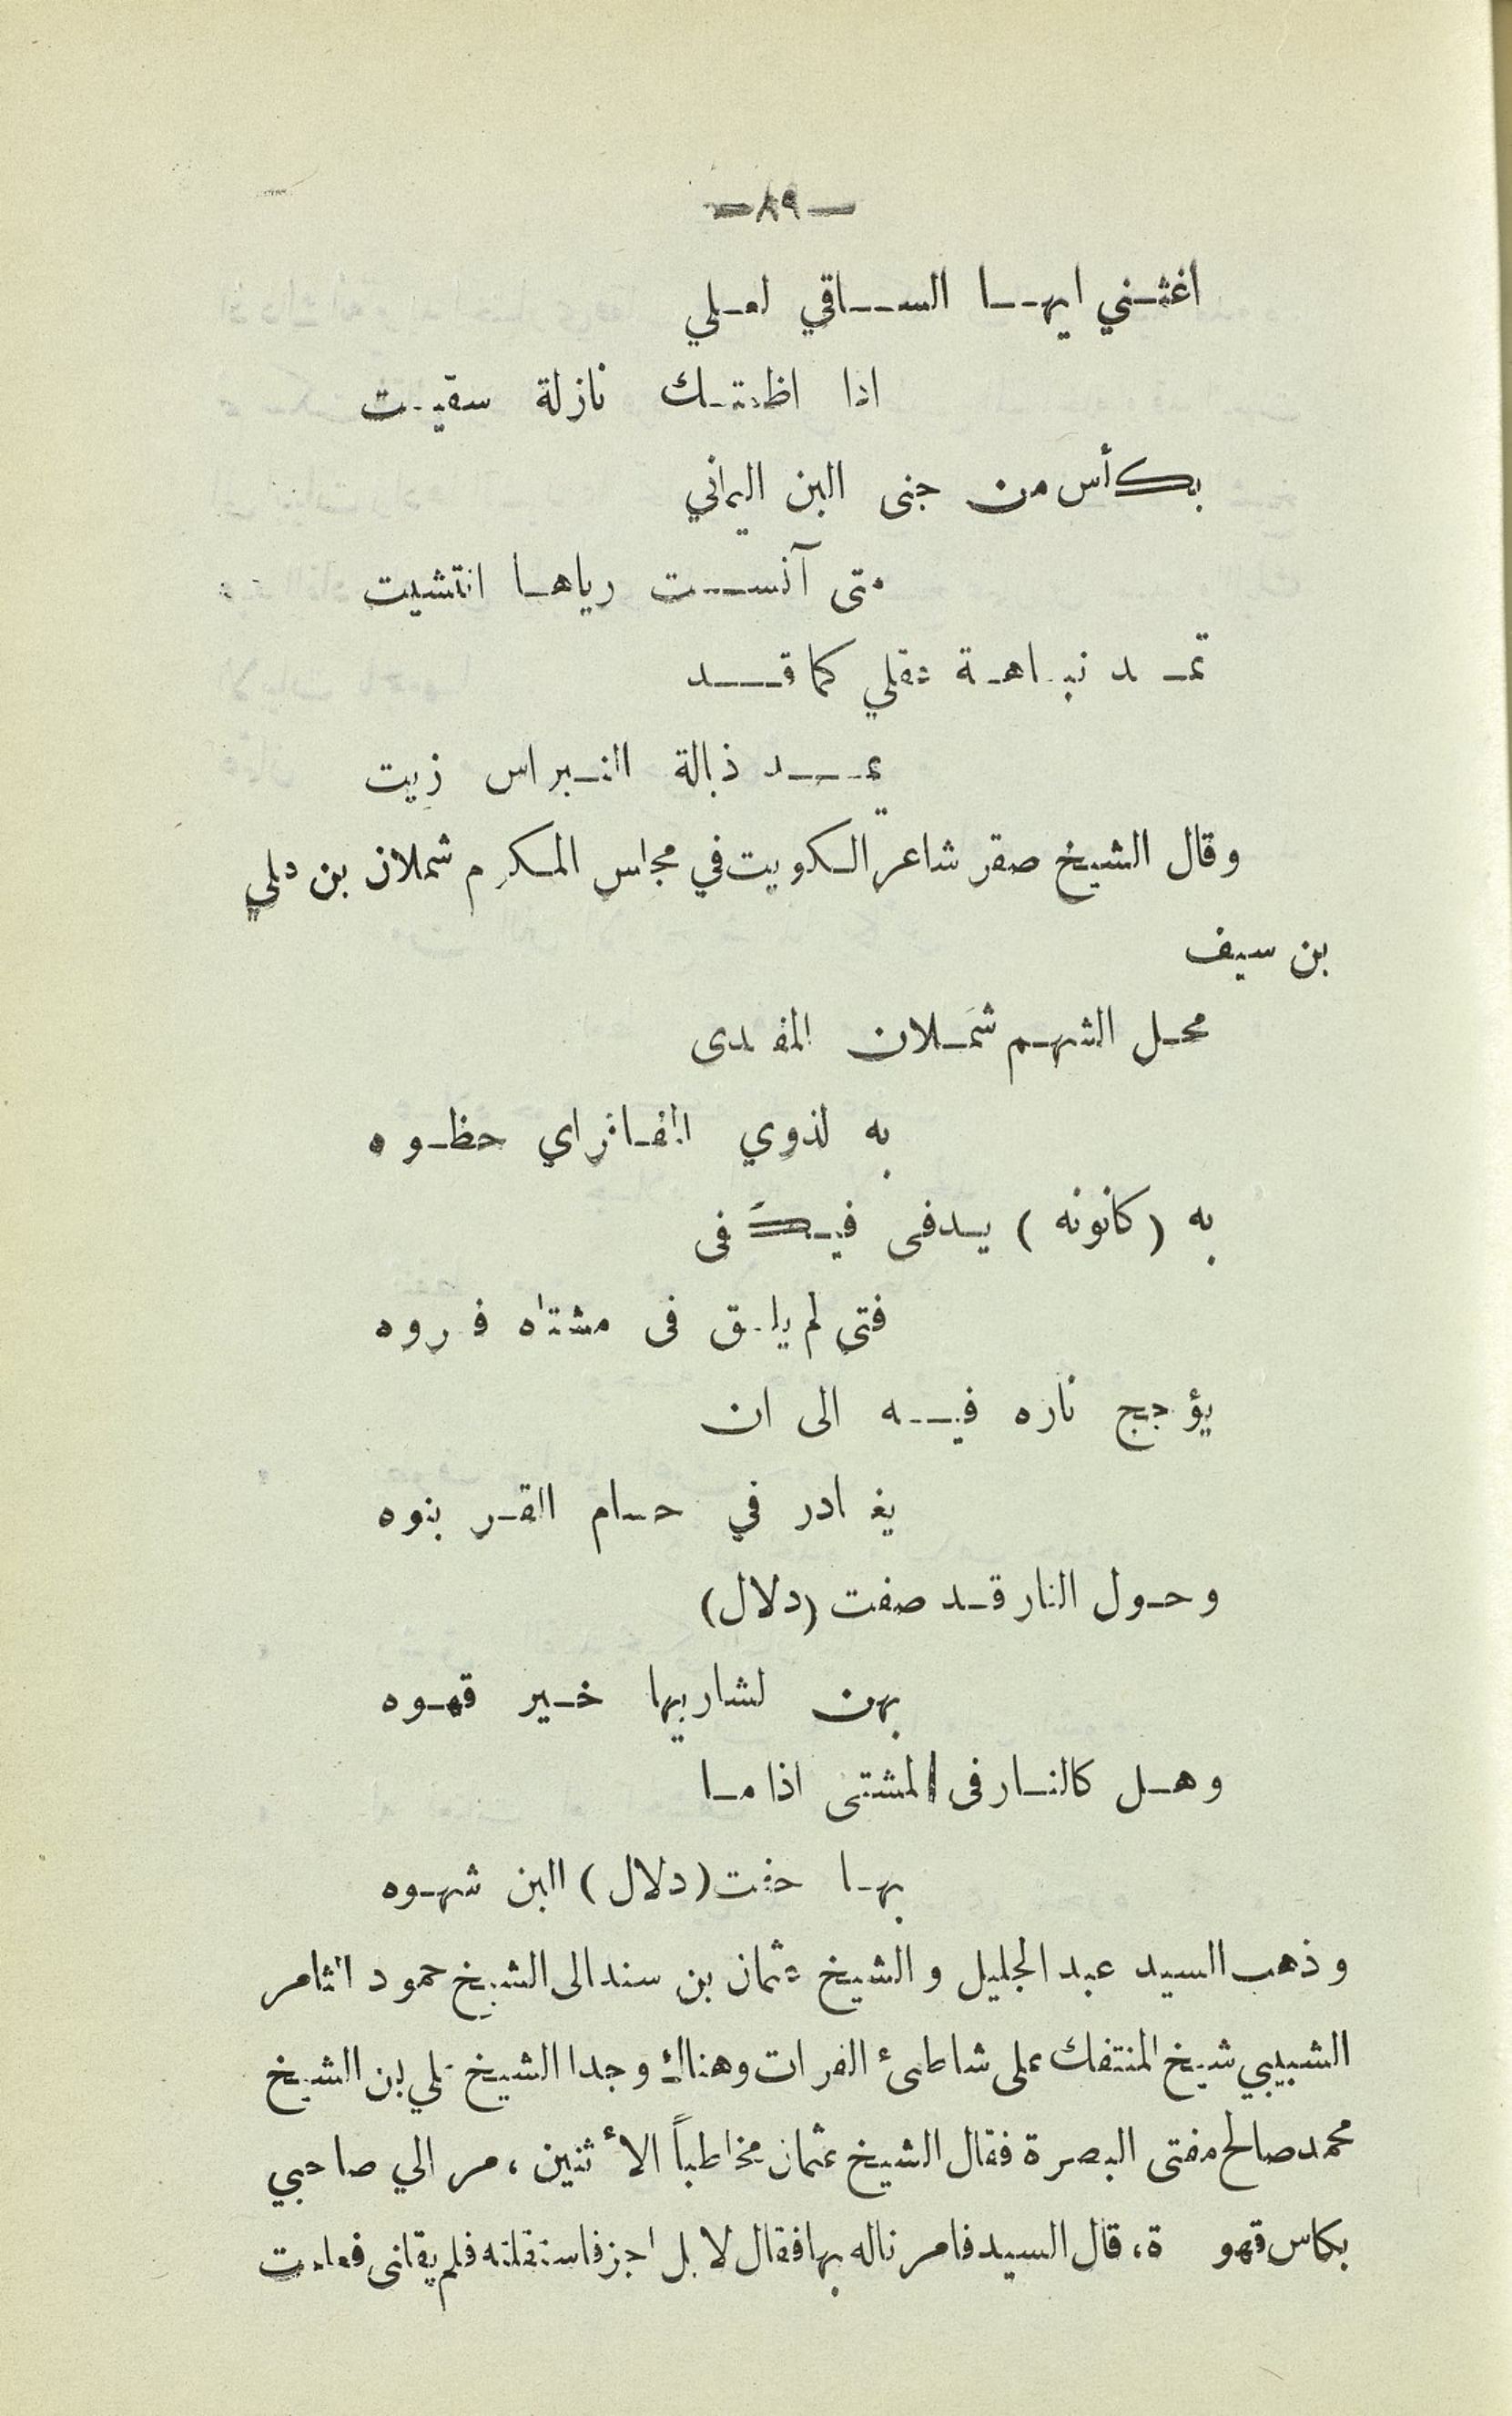 — ٨٩ —
اغثني ايها الساقي لعلي
اذا اظمتك نازلة سقيت
بكأس من جنى البن اليماني
متى آنست رياها انتشيت
تمد نباهة عقلي كما قد
يمد ذبالة النبراس زيت
وقال الشيخ صقر شاعر الكويت في مجلس المكرم شملان بن علي
بن سيف
محل الشهم شملان المفدى
به لذوي المفاخر اي حظوه
به (كانونه) يدفى فيكفى
فتى لم يلق فى مشتاه فروه
يؤجج ناره فيه الى ان
يغادر في حسام القر نبوه
وحول النار قد صفت (دلال)
بهن لشاربيها خير قهوه
وهل كالنار فى المشتى اذا ما
بها حفت (دلال) البن شهوه
وذهب السيد عبد الجليل والشيخ عثمان بن سند الى الشيخ حمود الثامر
الشبيبي شيخ المنتفك على شاطئ الفرات وهناك وجدا الشيخ علي بن الشيخ
محمد صالح مفتى البصرة فقال الشيخ عثمان مخاطباً الأثنين ، مر الي صاحبي
بكاس قهو ة، قال السيد فامر ناله بها فقال لا بل اجز فاستقلته فلم يقلنى فعلمت